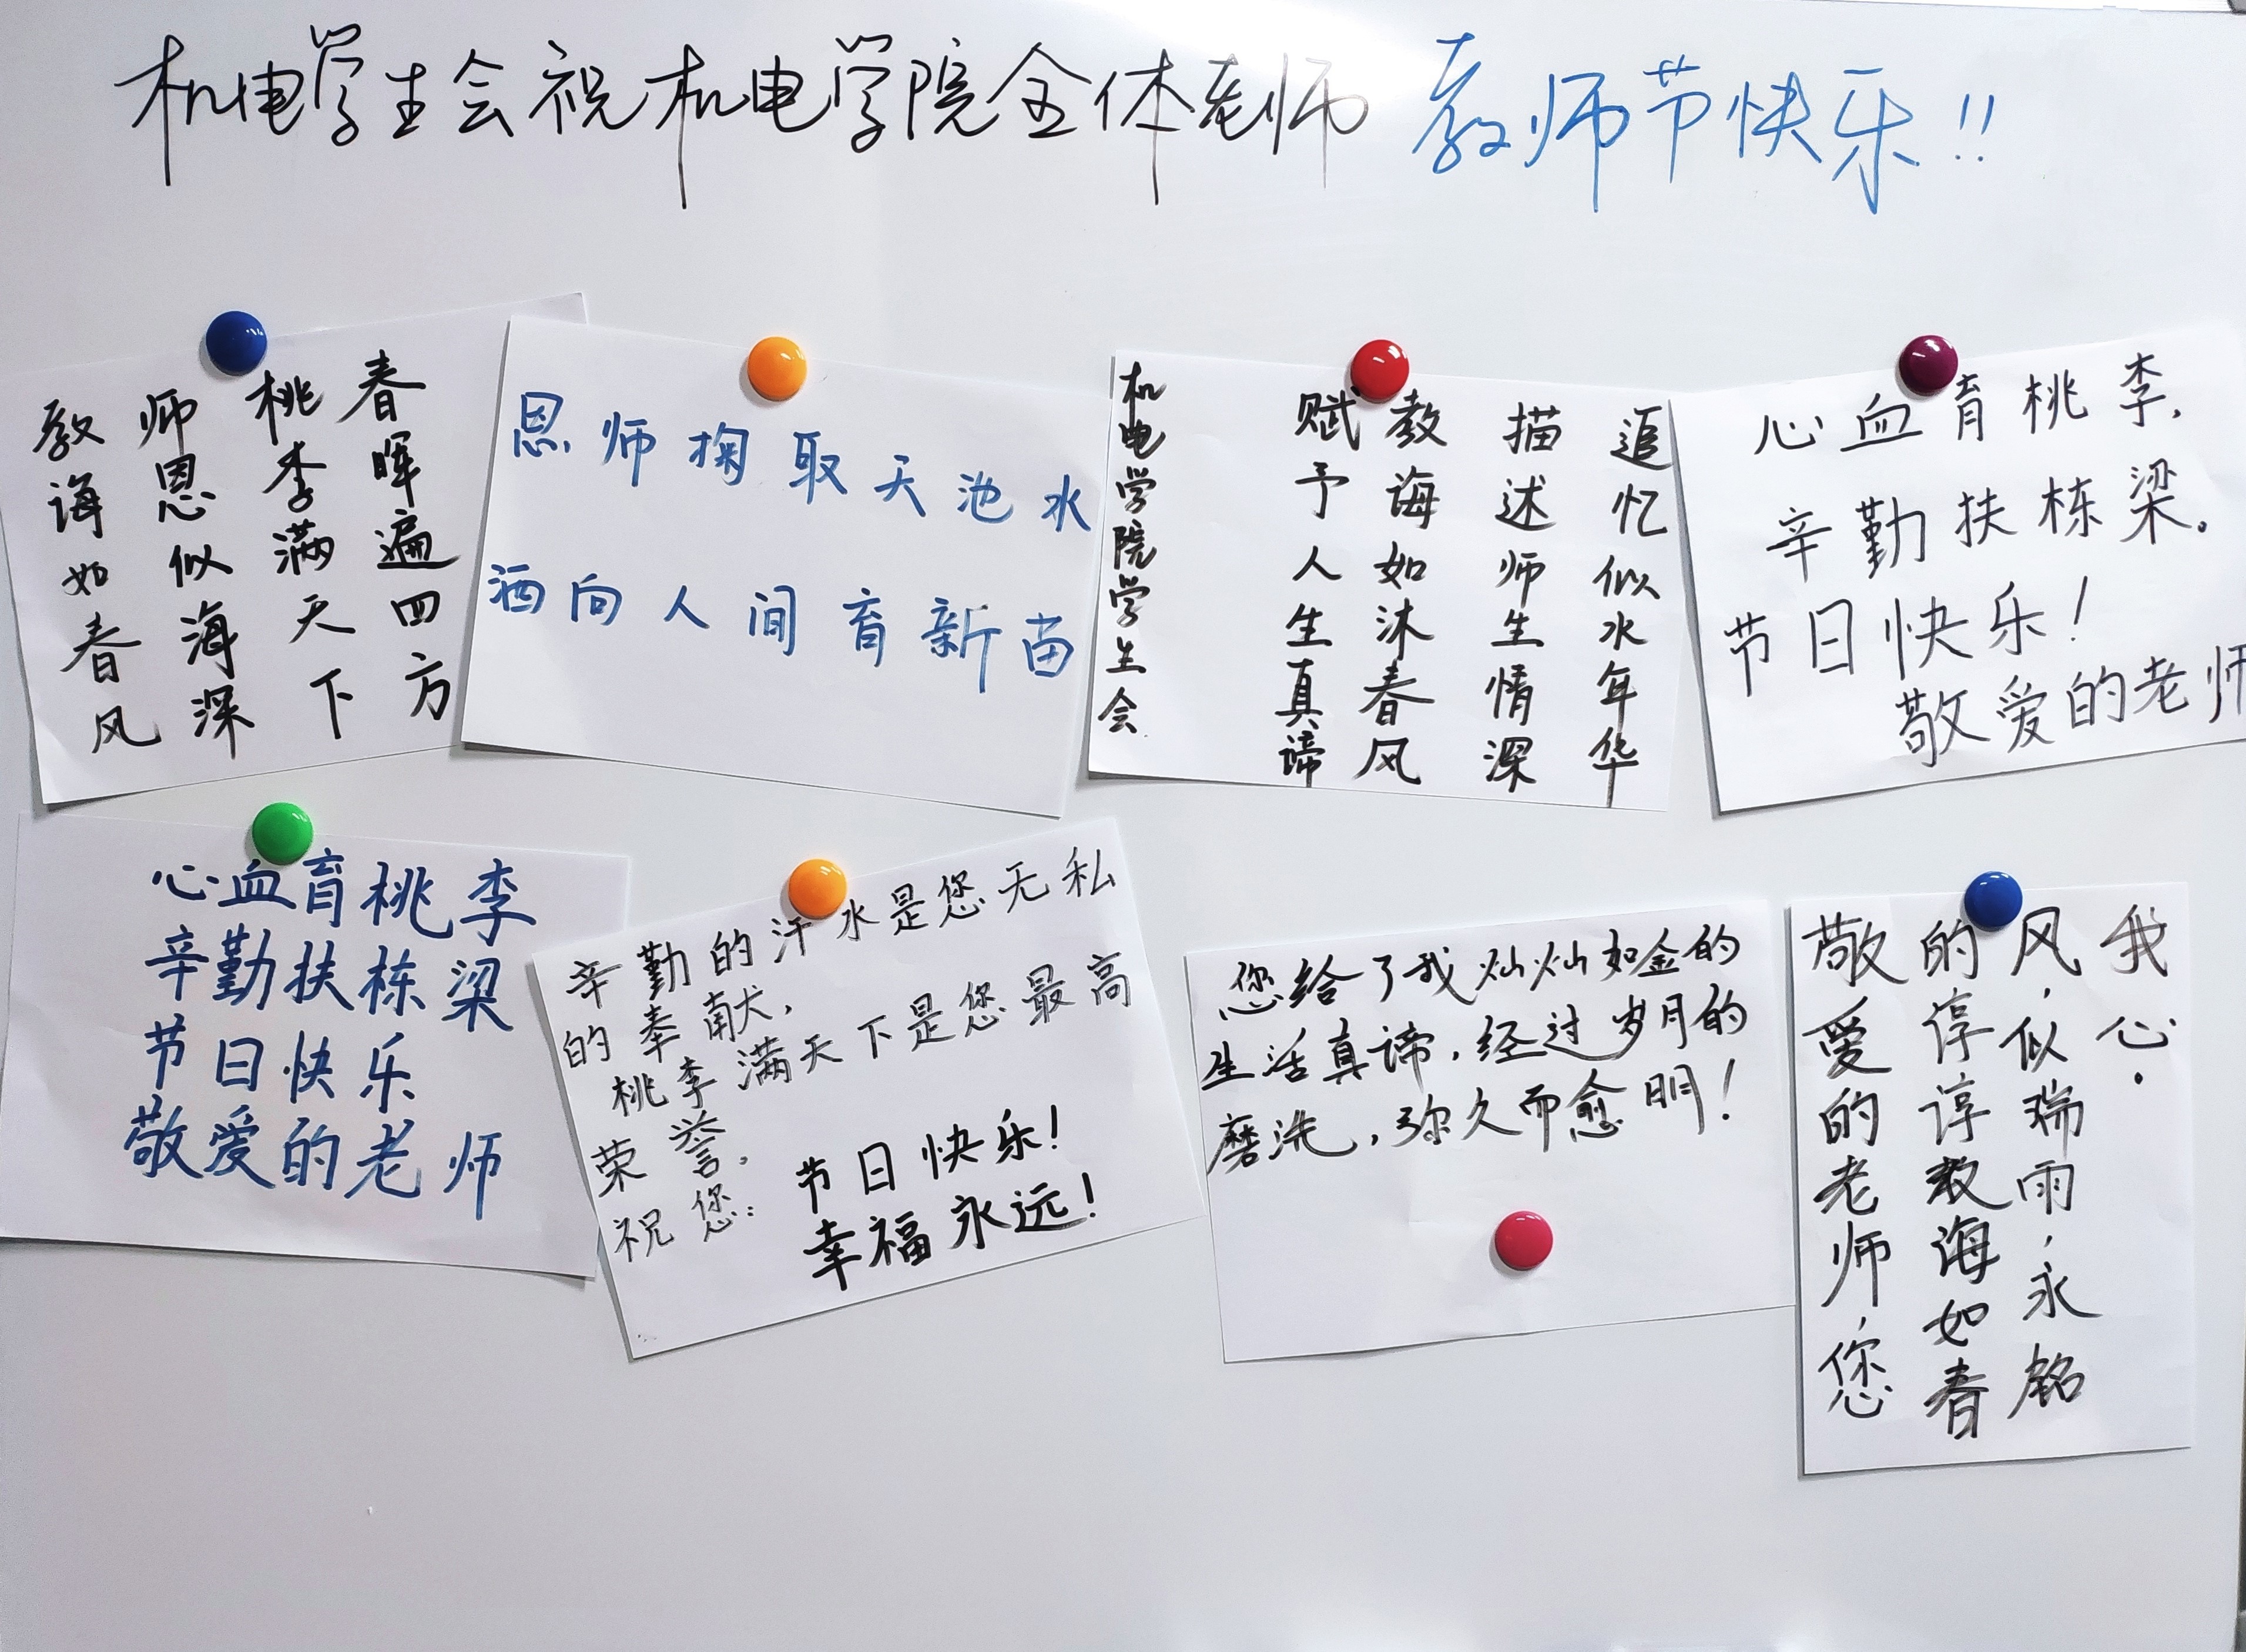 机电学生会祝机电学院全体老师 教师节快乐!!
春晖遍四方
桃李满天下
师恩似海深
教诲如春风
恩师掬取天池水
洒向人间育新苗
追忆似水年华
描述师生情深
教诲如沐春风
赋予人生真谛
机电学院学生会
心血育桃李,
辛勤扶栋梁。
节日快乐!
敬爱的老师
心血育桃李
辛勤扶栋梁
节日快乐
敬爱的老师
辛勤的汗水是您无私
的奉献,
桃李满天下是您最高
荣誉。
祝您:
节日快乐!
幸福永远!
您给了我灿灿如金的
生活真谛,经过岁月的
磨洗,弥久而愈明!
敬爱的老师,您
的谆谆教诲如春
风,似瑞雨,永铭
我心.